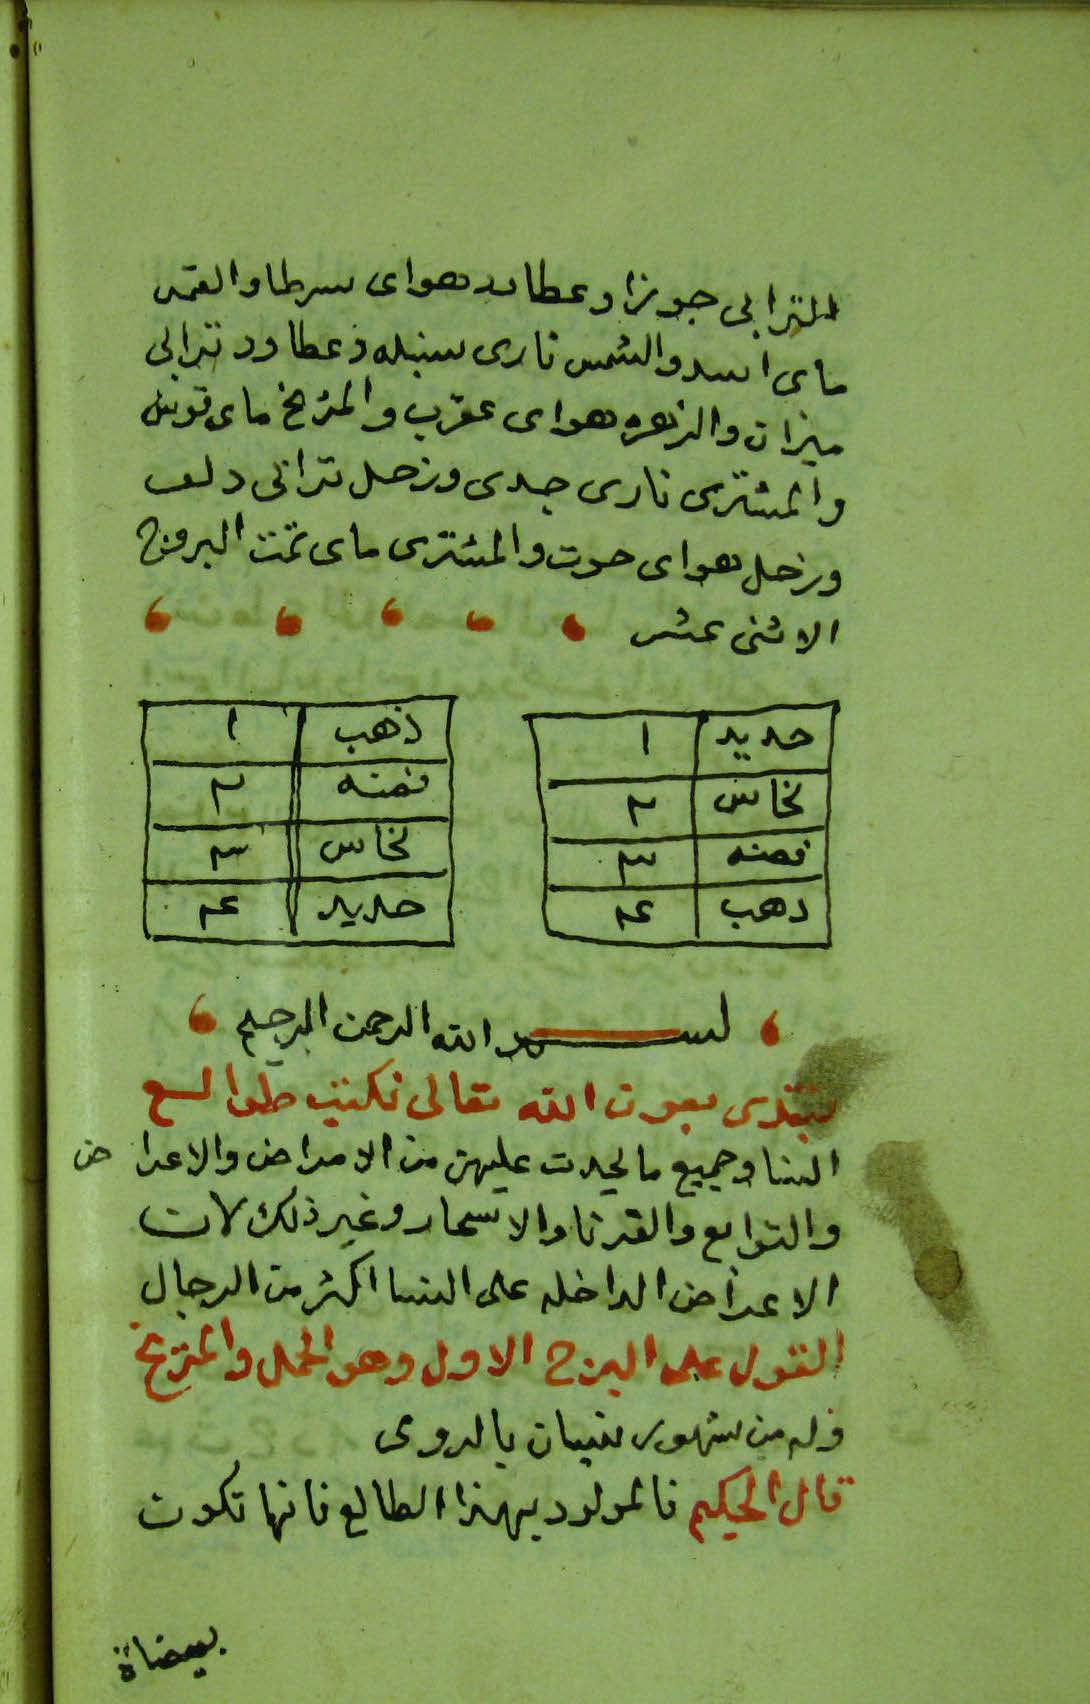 الترابي جوزا وعطارد هواى سرطا والقمر
ماى اسد والشمس نارى سنبله وعطارد ترابى
ميزان والزهره هواى عقرب والمريخ ماى قوس
والمشترى نارى جدى وزحل ترابى دلو
وزحل هواى حوت والمشترى ماى تمت البروج
الاثنى عشر
حديد ١
نحاس ٢
فضه ٣
دهب ٤
ذهب ١
فضه ٢
نحاس ٣
حديد ٤
بسم الله الرحمن الرحيم
نبتدى بعون الله تعالى نكتب طوالع
النسا وجميع ما يحدث عليهن من الامراض والاعراض
والتوابع والقرنا والاسحار وغير ذلك لان
الاعراض الداخله على النسا اكثر من الرجال
القول على البرج الاول وهو الحمل والمريخ
وله من شهور نيسان بالرومى
قال الحكيم فالمولود بهذا الطالع فانها تكون
بيضاة